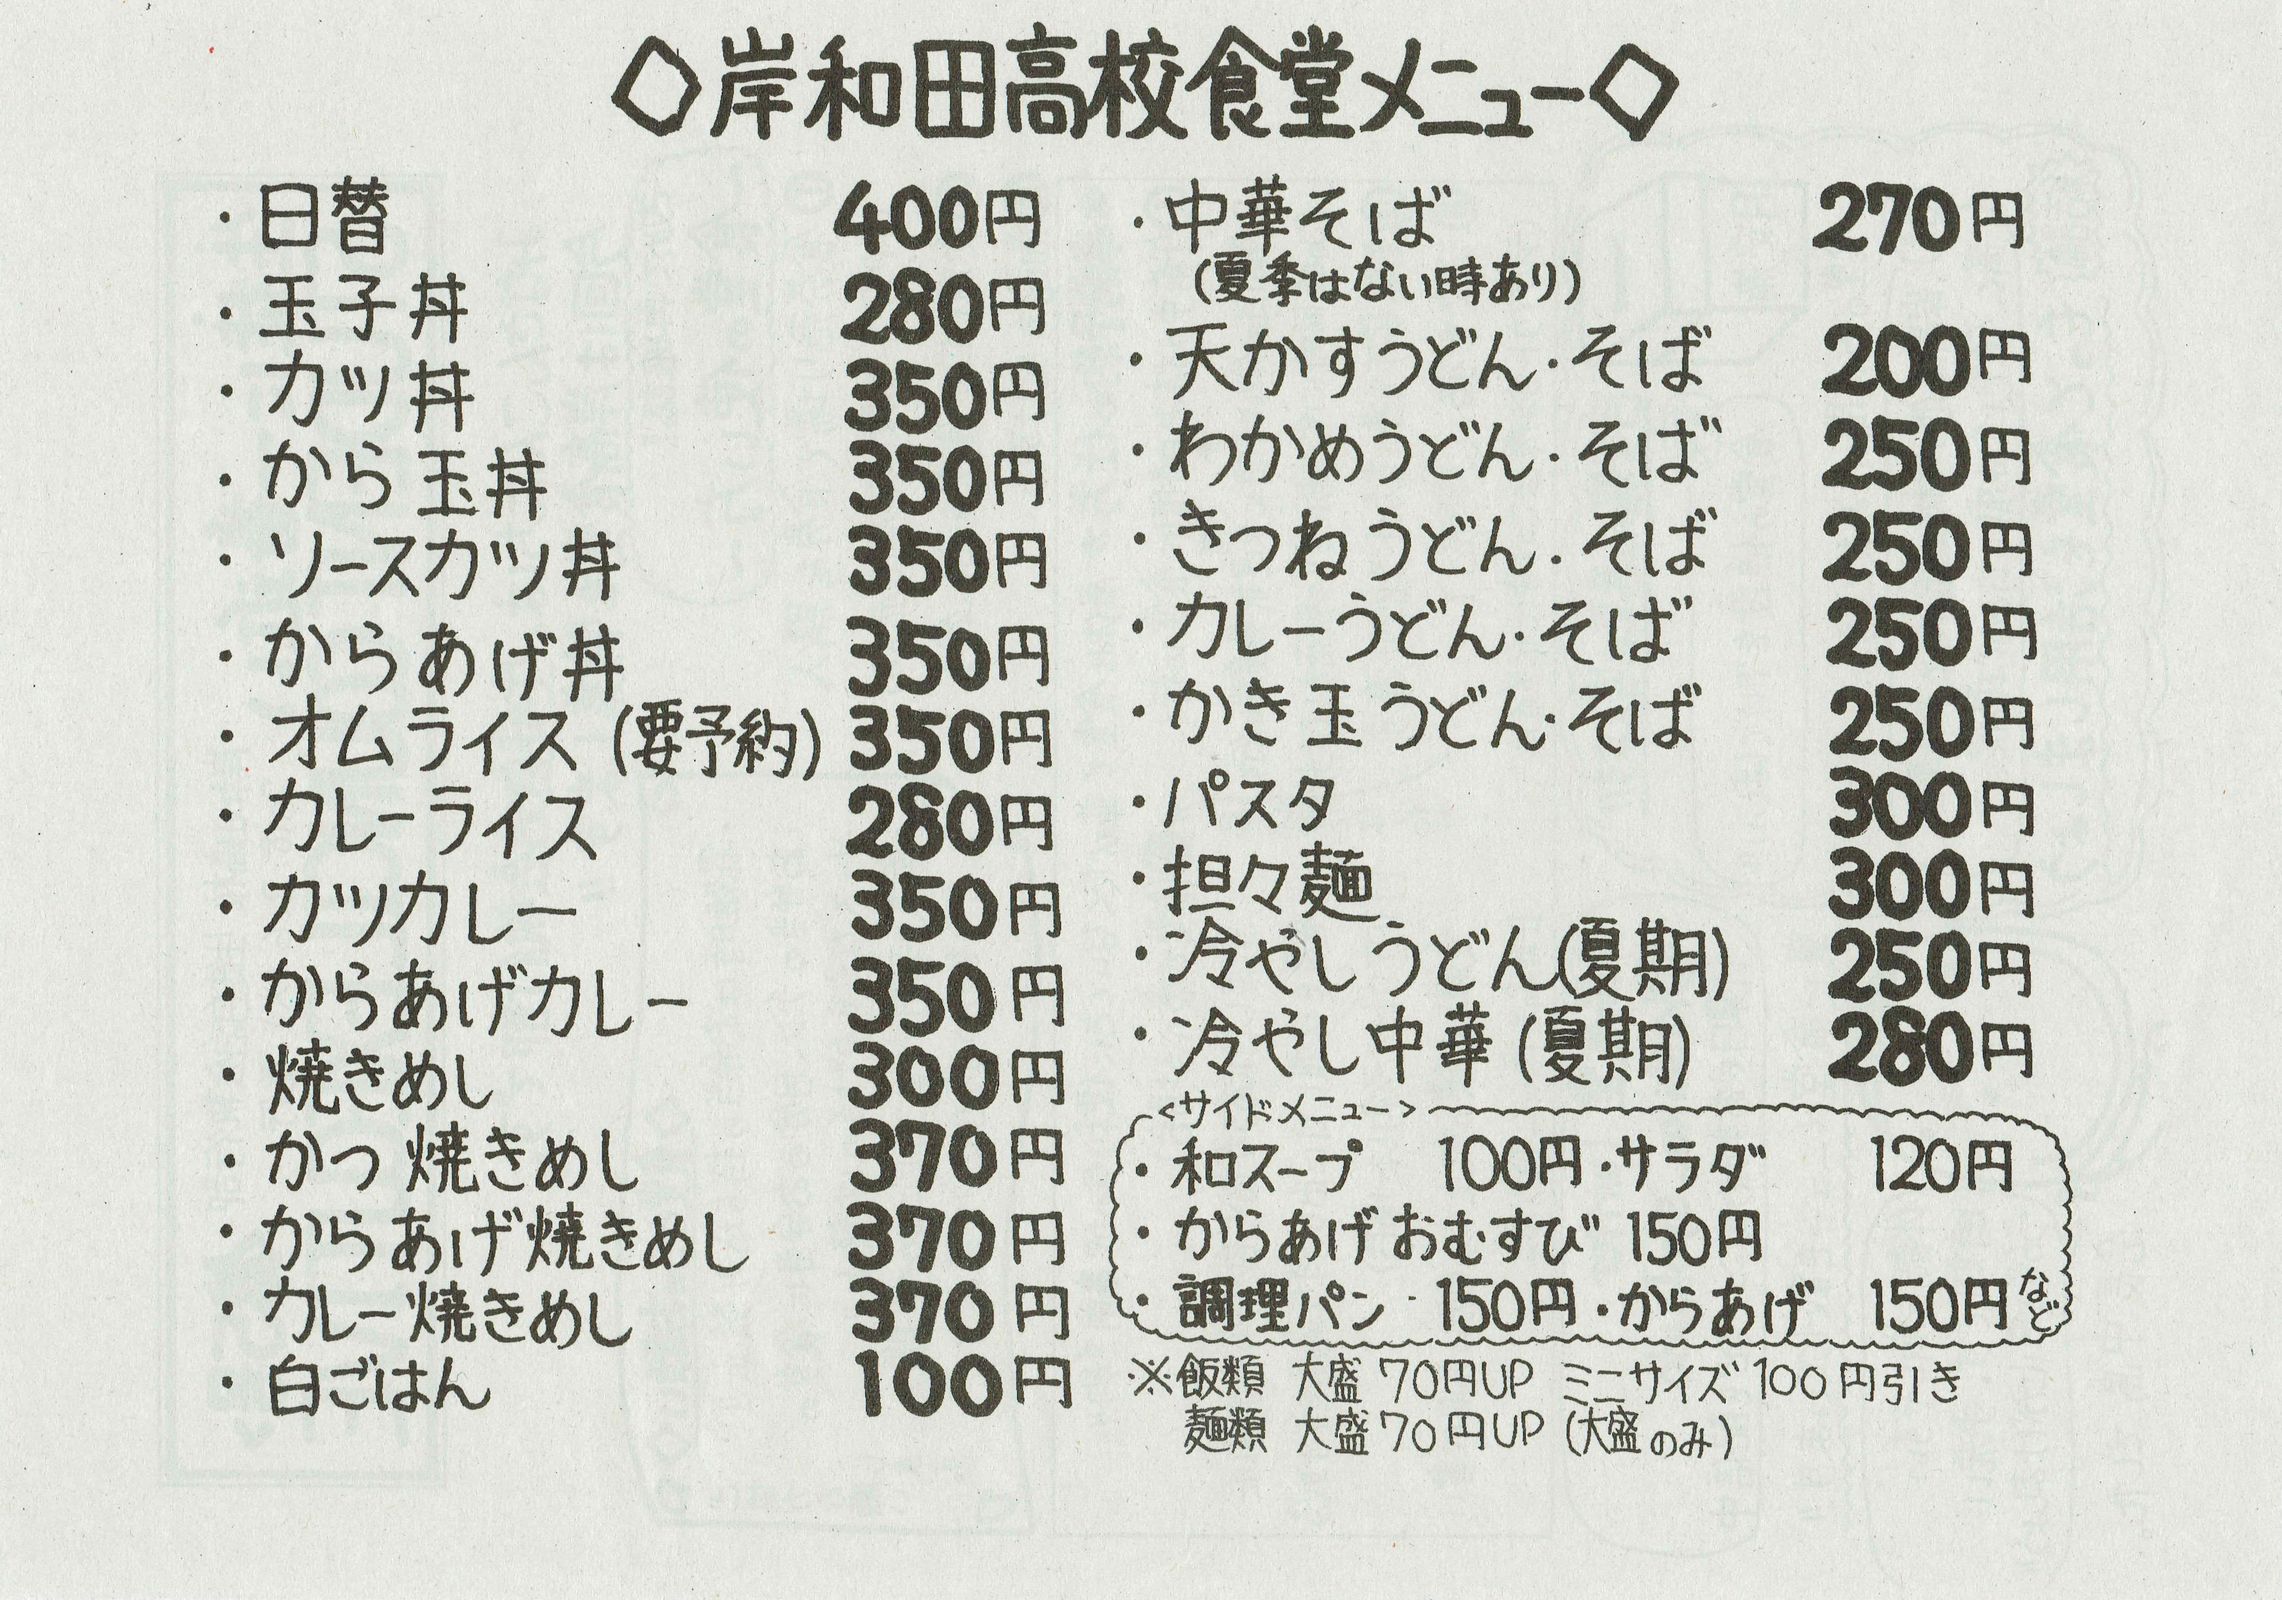 ◇岸和田高校食堂メニュー◇
・日替 400円
・玉子丼 280円
・カツ丼 350円
・から玉丼 350円
・ソースカツ丼 350円
・からあげ丼 350円
・オムライス(要予約) 350円
・カレーライス 280円
・カツカレー 350円
・からあげカレー 350円
・焼きめし 300円
・かつ焼きめし 370円
・からあげ焼きめし 370円
・カレー焼きめし 370円
・白ごはん 100円
・中華そば 270円
(夏季はない時あり)
・天かすうどん・そば 200円
・わかめうどん・そば 250円
・きつねうどん・そば 250円
・カレーうどん・そば 250円
・かき玉うどん・そば 250円
・パスタ 300円
・担々麺 300円
・冷やしうどん(夏期) 250円
・冷やし中華(夏期) 280円
<サイドメニュー>
・和スープ 100円・サラダ 120円
・からあげおむすび 150円
・調理パン 150円・からあげ 150円など
※飯類 大盛70円UP ミニサイズ100円引き
麺類 大盛70円UP (大盛のみ)